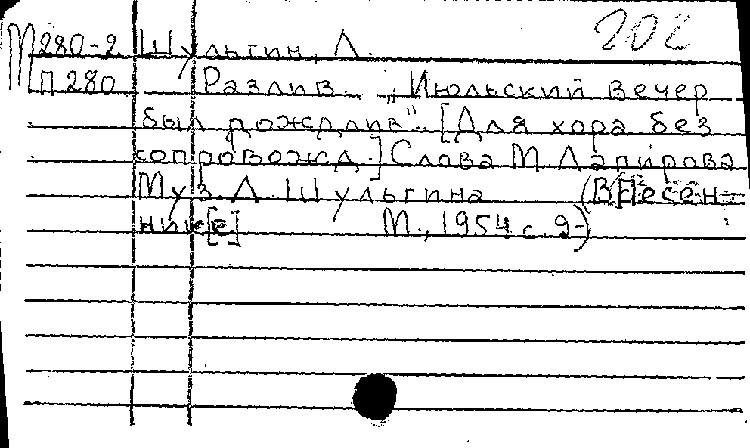 202
М280-2 Шульгин, Л.
П280 Разлив. „Июльский вечер
был дождлив". [Для хора без
сопровожд.] Слова М. Лапирова
Муз. Л. Шульгина (В[
нике[е] М., 1954 с. 9-)